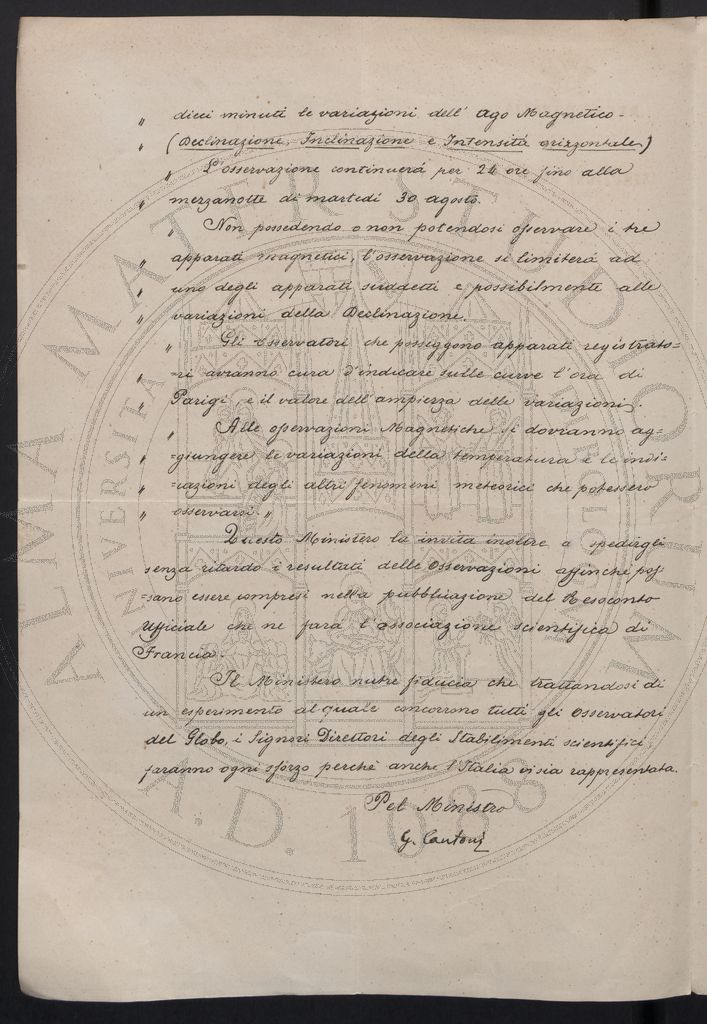 „ dieci minuti le variazioni dell' ago Magnetico -
„ (Declinazione, Inclinazione e Intensitá orizzontale)
„ L'osservazione continuerá per 24 ore fino alla
„ mezzanotte di martedí 30 agosto.
„ Non possedendo o non potendosi osservare i tre
„ apparati magnetici, l'osservazione si limiterá ad
„ uno degli apparati suddetti e possibilmente alle
„ variazioni della Declinazione.
„ Gli Osservatori che posseggono apparati registrato=
„ =ri avranno cura d'indicare sulle curve l'ora di
„ Parigi, e il valore dell'ampiezza delle variazioni.
„ Alle osservazioni Magnetiche si dovranno ag=
„ =giungere le variazioni della temperatura e le indi=
„ =cazioni degli altri fenomeni meteorici che potessero
„ osservarsi. „
Questo Ministero la invita inoltre a spedirgli
senza ritardo i resultati delle Osservazioni affinché pos=
=sano essere compresi nella pubblicazione del Resoconto
Ufficiale che ne fará l'associazione scientifica di
Francia.
Il Ministero nutre fiducia che trattandosi di
un esperimento al quale concorrono tutti gli Osservatori
del Globo, i Signori Direttori degli Stabilimenti scientifici,
faranno ogni sforzo perché anche l'Italia vi sia rappresentata.
Pel Ministro
G. Cantoni
ALMA MATER STUDIORUM
UNIVERSITA
A.D. 1088